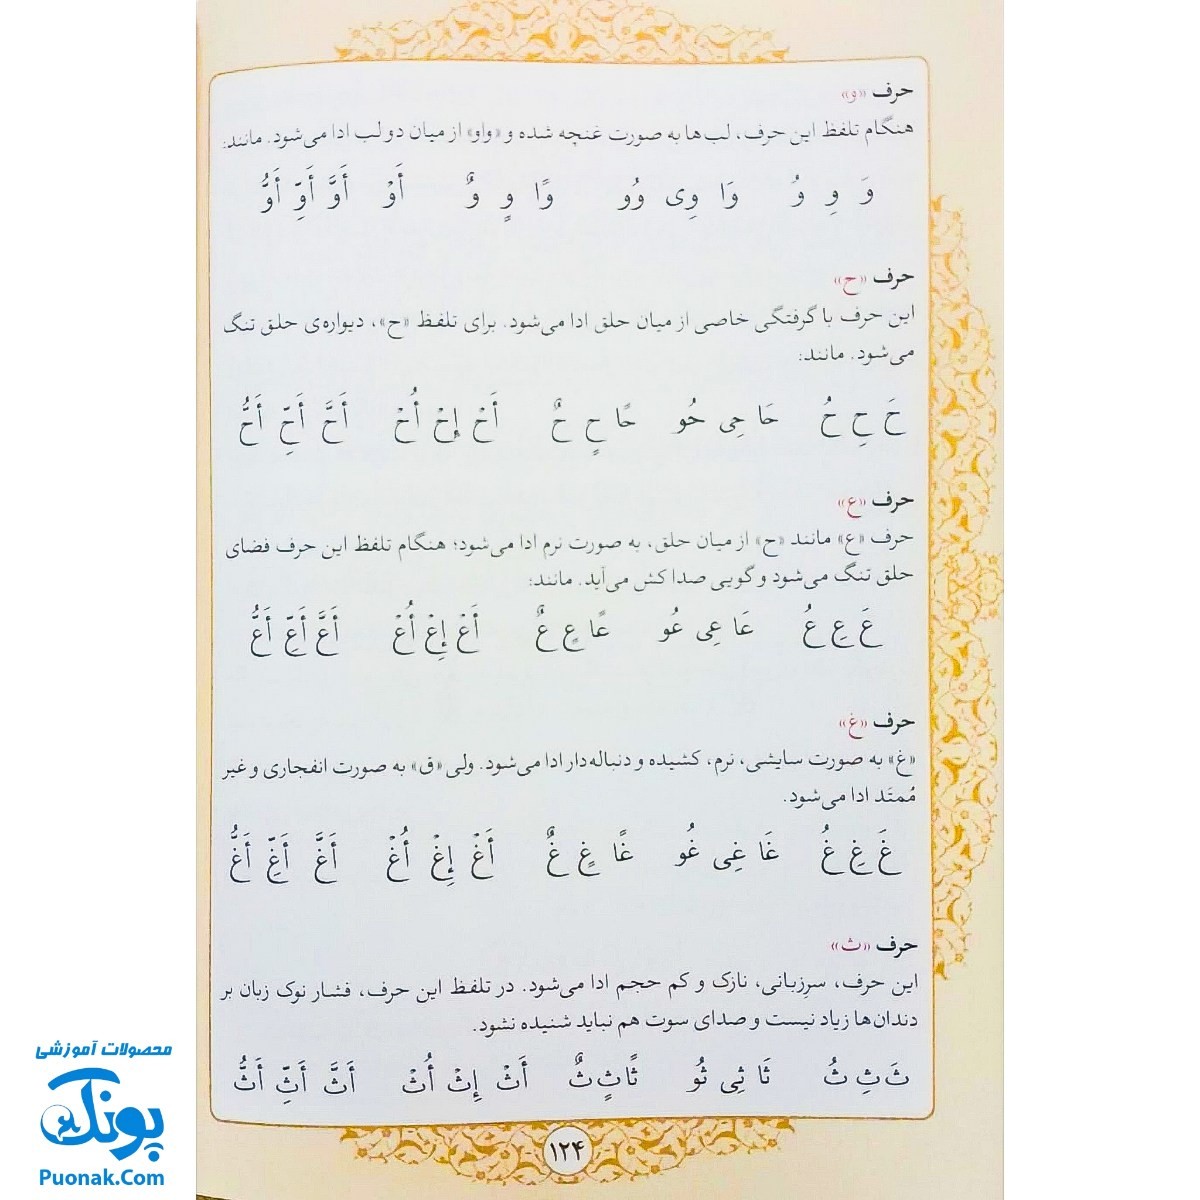 حرف «و»
هنگام تلفظ این حرف، لب‌ها به صورت غنچه شده و «واو» از میان دو لب ادا می‌شود. مانند:
وَ وِ وُ وَا وِی وُو وًا وٍ وٌ أَوْ أَوَّ أَوِّ أَوُّ
حرف «ح»
این حرف با گرفتگی خاصی از میان حلق ادا می‌شود. برای تلفظ «ح»، دیواره‌ی حلق تنگ
می‌شود. مانند:
حَ حِ حُ حَا حِی حُو حًا حٍ حٌ أَحْ إِحْ أُحْ أَحَّ أَحِّ أَحُّ
حرف «ع»
حرف «ع» مانند «ح» از میان حلق، به صورت نرم ادا می‌شود؛ هنگام تلفظ این حرف فضای
حلق تنگ می‌شود و گویی صدا کش می‌آید. مانند:
عَ عِ عُ عَا عِی عُو عًا عٍ عٌ أَعْ إِعْ أُعْ أَعَّ أَعِّ أَعُّ
حرف «غ»
«غ» به صورت سایشی، نرم، کشیده و دنباله‌دار ادا می‌شود. ولی «ق» به صورت انفجاری و غیر
مُمتَد ادا می‌شود.
غَ غِ غُ غَا غِی غُو غًا غٍ غٌ أَغْ إِغْ أُغْ أَغَّ أَغِّ أَغُّ
حرف «ث»
این حرف، سرِزبانی، نازک و کم حجم ادا می‌شود. در تلفظ این حرف، فشار نوک زبان بر
دندان‌ها زیاد نیست و صدای سوت هم نباید شنیده نشود.
ثَ ثِ ثُ ثَا ثِی ثُو ثًا ثٍ ثٌ أَثْ إِثْ أُثْ أَثَّ أَثِّ أَثُّ
۱۲۴
محصولات آموزشی
پونک
Puonak.Com